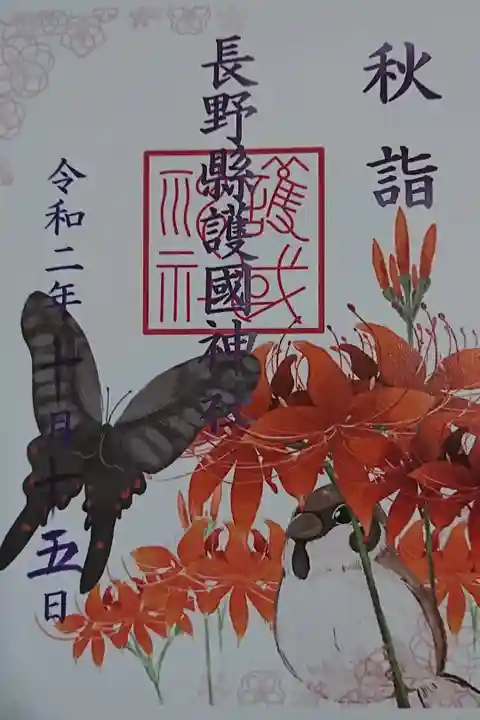 秋詣
長野縣護國神社
令和二年十月十五日